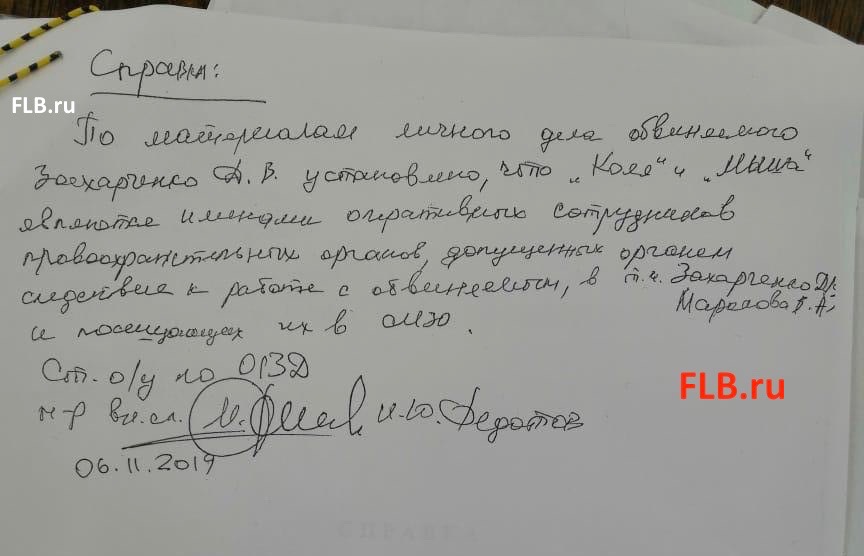 Справка:
FLB.ru
По материалам личного дела обвиняемого
Захарченко Д. В. установлено, что „Коля“ и „Миша“
являются именами оперативных сотрудников
правоохранительных органов, допущенных органом
следствия к работе с обвиняемым, в т.ч. Захарченко Д.,
Маролова Г. А.,
и посещающих их в СИЗО.
Ст. о/у по ОВЗД
FLB.ru
м-р вн.сл. И.Ю. Федотов
06.11.2019
СПРАВКА